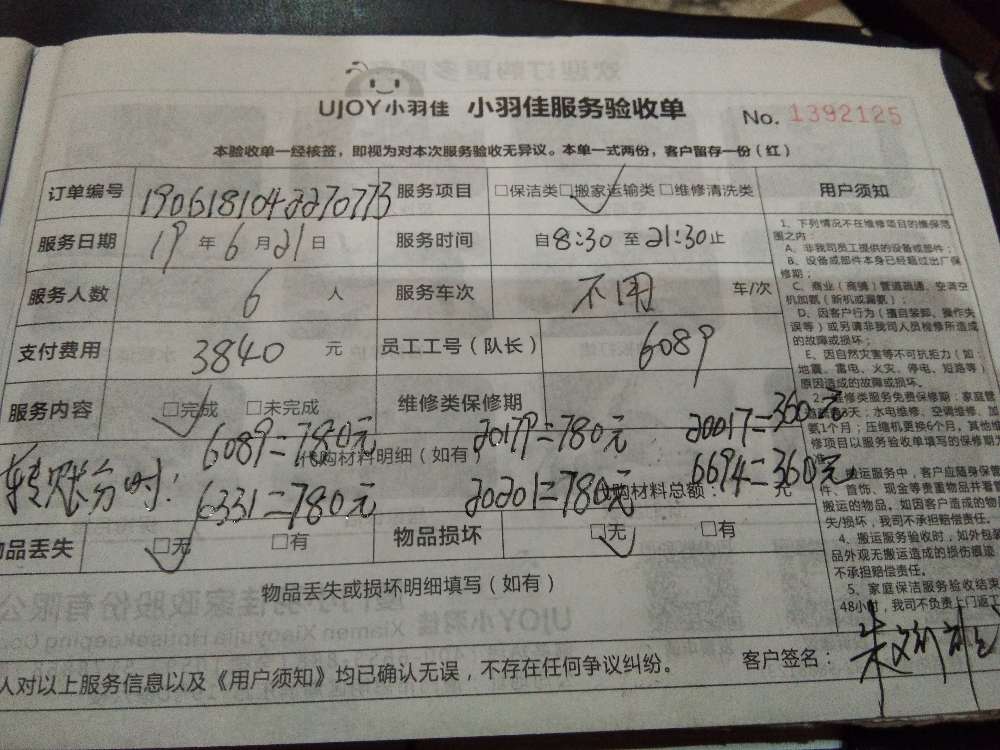 UJOY小羽佳 小羽佳服务验收单 No. 1392125
本验收单一经核签，即视为对本次服务验收无异议。本单一式两份，客户留存一份（红）
订单编号 1906181042270773 服务项目 □保洁类 □搬家运输类 □维修清洗类 用户须知
服务日期 19 年 6 月 21 日 服务时间 自 8:30 至 21:30 止
服务人数 6 人 服务车次 不用 车/次
支付费用 3840 元 员工工号（队长） 6089
服务内容 □完成 □未完成 维修类保修期
6089=780元 20179=780元 20017=360元
代购材料明细（如有）
转账分时：6331=780元 20201=780元 6694=360元
购材料总额： 元
品丢失 □无 □有 物品损坏 □无 □有
物品丢失或损坏明细填写（如有）
人对以上服务信息以及《用户须知》均已确认无误，不存在任何争议纠纷。 客户签名：
1、下列情况不在维修项目的维保范
围之内：
A、非我司员工提供的设备或部件；
B、设备或部件本身已经超过出厂保
修期；
C、商业（商铺）管道疏通、空调空
机加氨（新机或漏氨）；
D、因客户行为（擅自装卸、操作失
误等）或另请非我司人员检修所造成
的故障或损坏；
E、因自然灾害等不可抗拒力（如：
地震、雷电、火灾、停电、短路等）
原因造成的故障或损坏。
2、维修类服务免费保修期：家庭管
3天；水电维修、空调维修、加
氨1个月；压缩机更换6个月，其他维
修项目以服务验收单填写的保修期为
搬运服务中，客户应随身保管
件、首饰、现金等贵重物品并看管
搬运的物品。如因客户造成的物品
失/损坏，我司不承担赔偿责任。
4、搬运服务验收时，如外包装
品外观无搬运造成的损伤痕迹
不承担赔偿责任。
5、家庭保洁服务验收结束
48小时，我司不负责上门返工